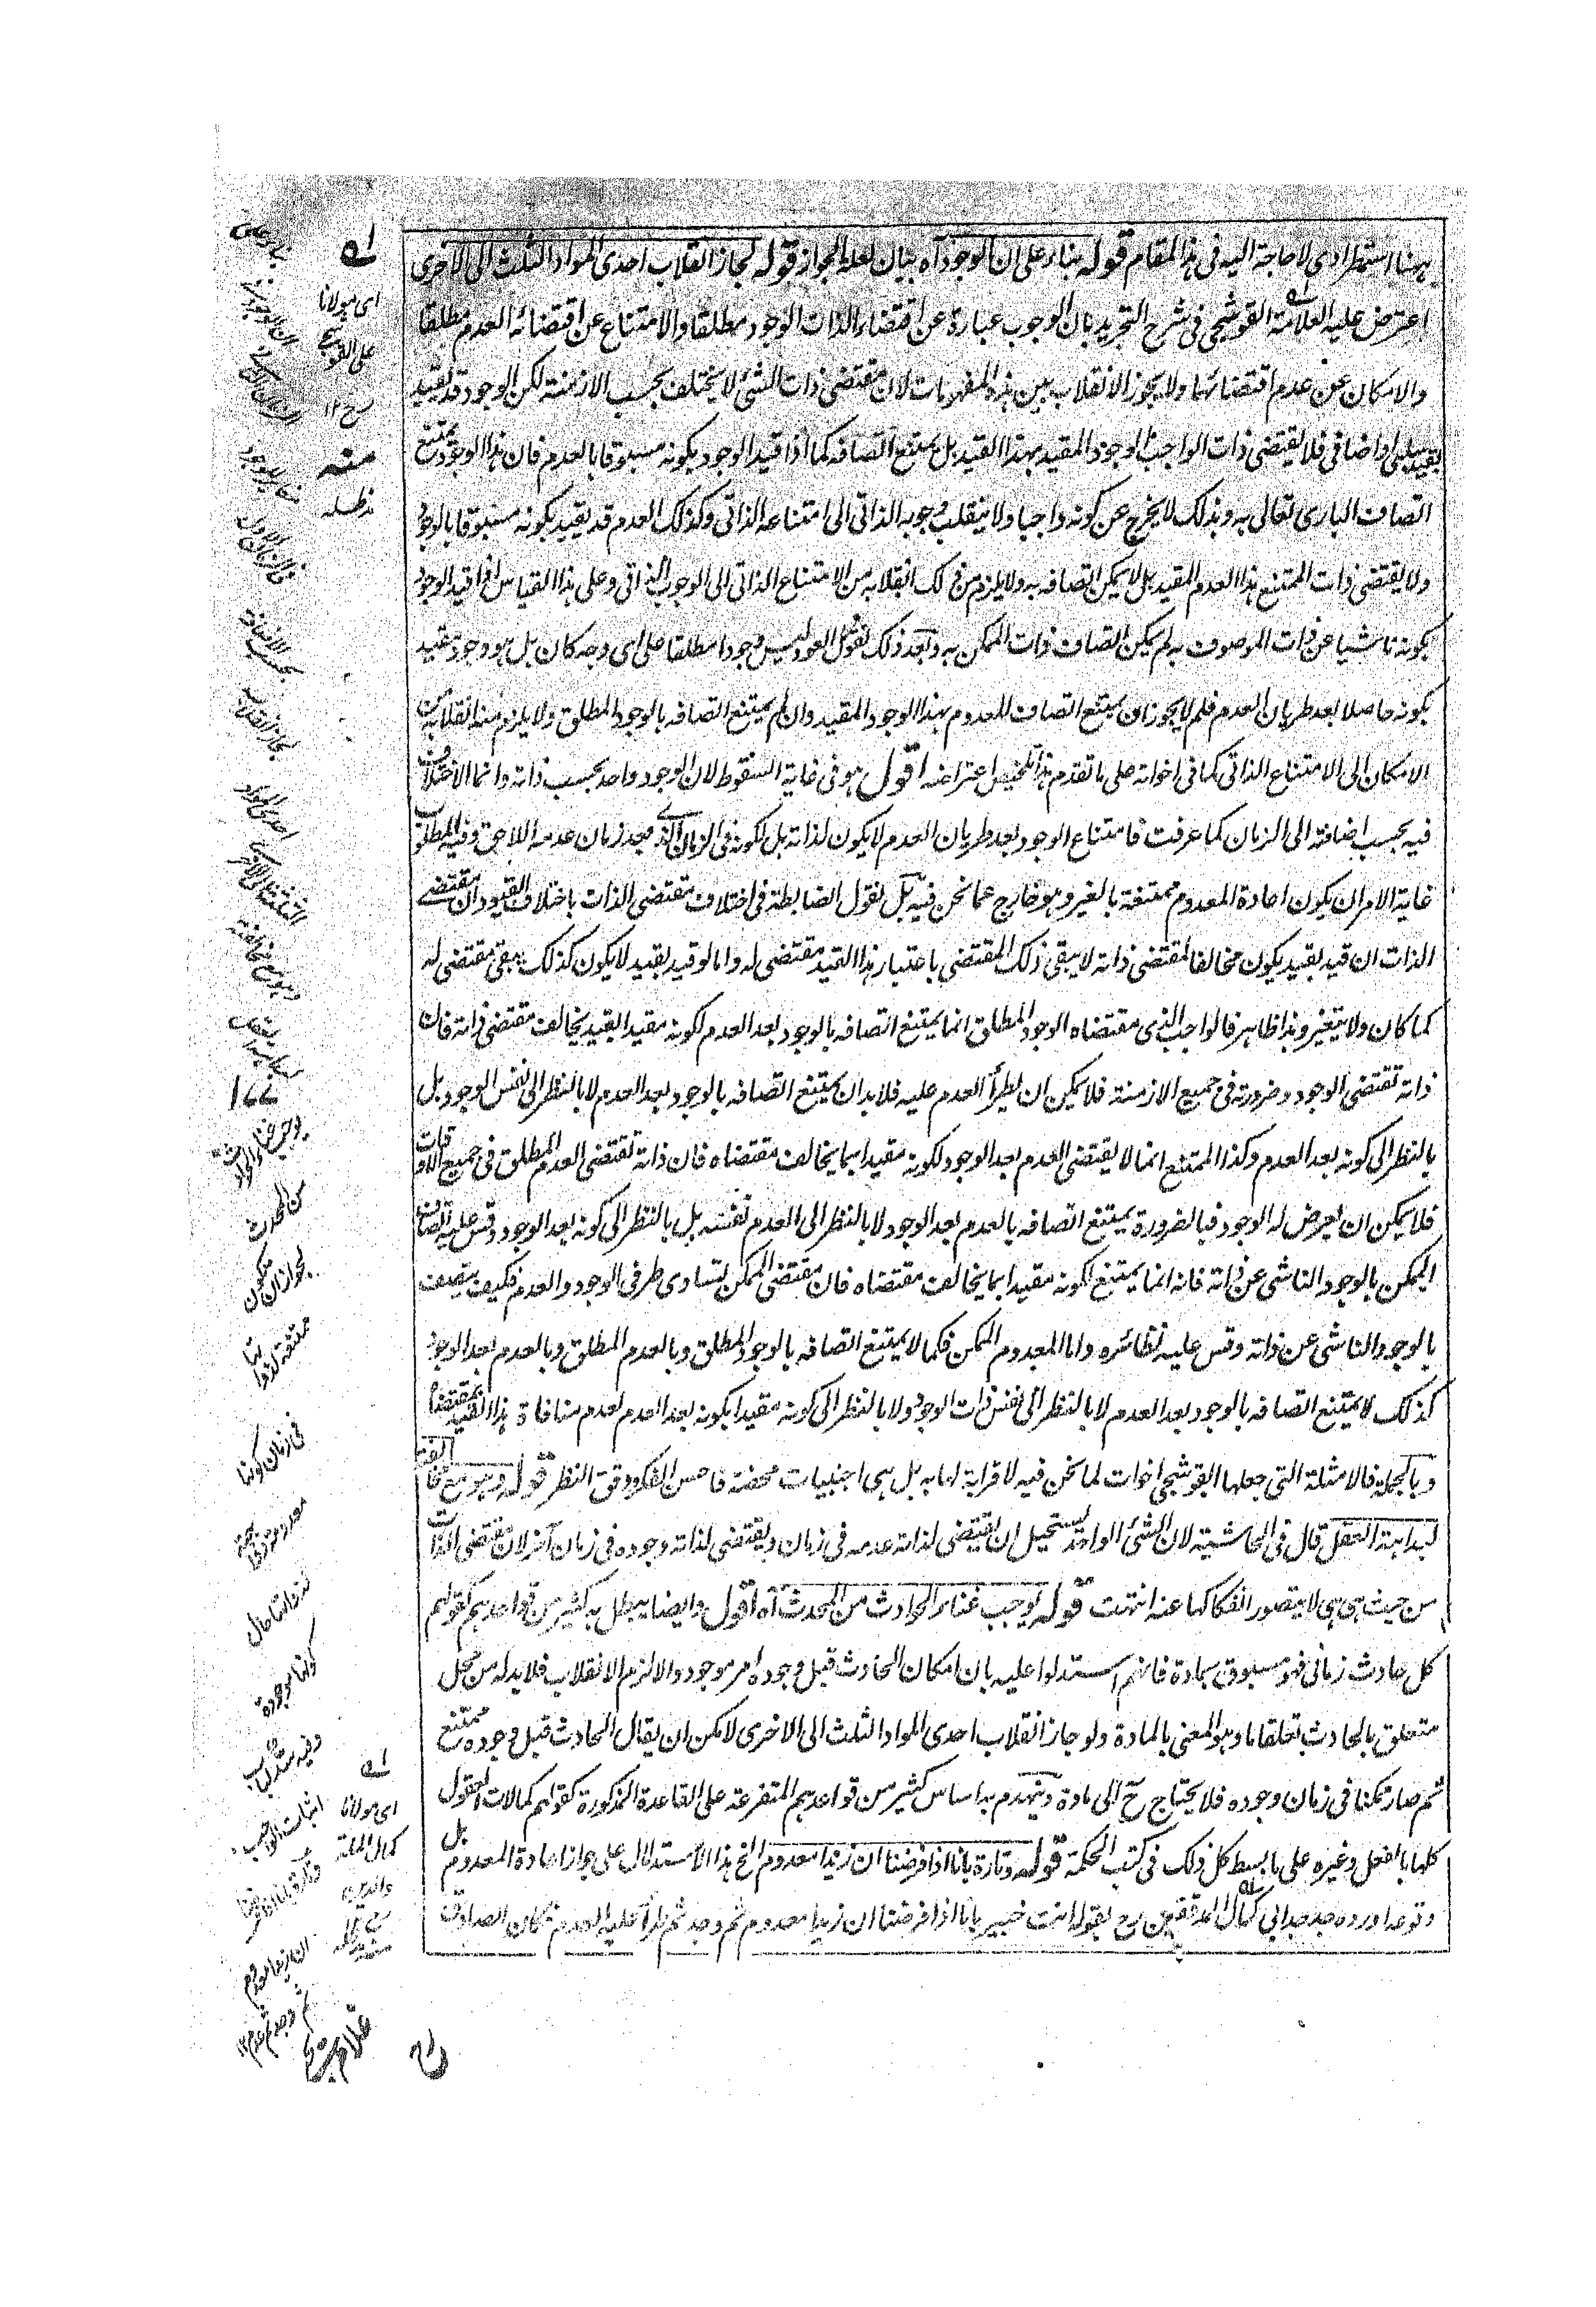 ههنا استطرادى لا حاجة اليه فى هذا المقام قوله بناء على ان الوجود آه بيان لعلة الجواز قوله لجاز انقلاب احدى المواد الثلث الى الاخرى
اعترض عليه العلامة القوشجى فى شرح التجريد بان الوجوب عبارة عن اقتضاء الذات الوجود مطلقا والامتناع عن اقتضائه العدم مطلقا
والامكان عن عدم اقتضائهما ولا يجوز الانقلاب بين هذه المفهومات لان مقتضى ذات الشئ لا يختلف بحسب الازمنة لكن الوجود قد يقيد
بقيد سلبى او اضافى فلا يقتضى ذات الواجب الوجود المقيد بهذا القيد بل يمتنع اتصافه كما اذا قيد الوجود بكونه مسبوقا بالعدم فان هذا الوجود يمتنع
اتصاف البارى تعالى به وبذلك لا يخرج عن كونه واجبا ولا ينقلب وجوبه الذاتى الى امتناعه الذاتى وكذلك العدم قد يقيد بكونه مسبوقا بالوجود
ولا يقتضى ذات الممتنع هذا العدم المقيد بل لا يمكن اتصافه به ولا يلزم من ذلك انقلابه من الامتناع الذاتى الى الوجوب الذاتى وعلى هذا القياس اذا قيد الوجود
بكونه ناشيا عن ذات الموصوف به لم يكن اتصاف ذات الممكن به وبعد ذلك نقول العود ليس وجودا مطلقا على اى وجه كان بل هو وجود مقيد
بكونه حاصلا بعد طريان العدم فلم لا يجوز ان يمتنع اتصاف المعدوم بهذا الوجود المقيد وان لم يمتنع اتصافه بالوجود المطلق ولا يلزم منه انقلابه من
الامكان الى الامتناع الذاتى كما فى اخواته على ما تقدم هذا تلخيص اعتراضه اقول هو فى غاية السقوط لان الوجود واحد بحسب ذاته وانما الاختلاف
فيه بحسب اضافته الى الزمان كما عرفت فامتناع الوجود بعد طريان العدم لا يكون لذاته بل لكونه فى الزمان الذى بعد زمان عدمه اللاحق وفيه المطلوب
غاية الامر ان يكون اعادة المعدوم ممتنعة بالغير وهو خارج عما نحن فيه بل نقول الضابطة فى اختلاف مقتضى الذات باختلاف القيود ان مقتضى
الذات ان قيد بقيد يكون مخالفا لمقتضى ذاته لا يبقى ذلك المقتضى باعتبار هذا القيد مقتضى له واما لو قيد بقيد لا يكون كذلك يبقى مقتضى له
كما كان ولا يتغير وهذا ظاهر فالواجب الذى مقتضاه الوجود المطلق انما يمتنع اتصافه بالوجود بعد العدم لكونه مقيدا بقيد يخالف مقتضى ذاته فان
ذاته تقتضى الوجود وضرورته فى جميع الازمنة فلا يمكن ان يطرأ العدم عليه فلا بد ان يمتنع اتصافه بالوجود بعد العدم لا بالنظر الى نفس الوجود بل
بالنظر الى كونه بعد العدم وكذا الممتنع انما لا يقتضى العدم بعد الوجود لكونه مقيدا بما يخالف مقتضاه فان ذاته تقتضى العدم المطلق فى جميع الاوقات
فلا يمكن ان يعرض له الوجود فبالضرورة يمتنع اتصافه بالعدم بعد الوجود لا بالنظر الى العدم نفسه بل بالنظر الى كونه بعد الوجود وقس عليه اتصاف
الممكن بالوجود الناشى عن ذاته فانه انما يمتنع لكونه مقيدا بما يخالف مقتضاه فان مقتضى الممكن تساوى طرفى الوجود والعدم فكيف يتصف
بالوجود الناشى عن ذاته وقس عليه نظائره واما المعدوم الممكن فكما لا يمتنع اتصافه بالوجود المطلق وبالعدم المطلق وبالعدم بعد الوجود
كذلك لا يمتنع اتصافه بالوجود بعد العدم لا بالنظر الى نفس ذات الوجود ولا بالنظر الى كونه مقيدا بكونه بعد العدم لعدم منافاة هذا القيد بمقتضاه
وبالجملة فالامثلة التى جعلها القوشجى اخوات لما نحن فيه لا قرابة لها به بل هى اجنبيات محضة فاحسن الفكر ودقق النظر قوله وهو مع مخالفته
لبداهة العقل قال فى الحاشية لان الشئ الواحد يستحيل ان يقتضى لذاته عدمه فى زمان ويقتضى لذاته وجوده فى زمان آخر لان مقتضى الذات
من حيث هى هى لا يتصور انفكاكها عنه انتهت قوله يوجب غناء الحوادث من المحدث آه اقول وايضا يبطل به كثير من قواعدهم كقولهم
كل حادث زمانى فهو مسبوق بمادة فانهم استدلوا عليه بان امكان الحادث قبل وجوده امر موجود والا لزم الانقلاب فلا بد له من محل
متعلق بالحادث تعلقا ما وهو المعنى بالمادة ولو جاز انقلاب احدى المواد الثلث الى الاخرى لامكن ان يقال الحادث قبل وجوده ممتنع
ثم صار ممكنا فى زمان وجوده فلا يحتاج ح الى مادة وينهدم به اساس كثير من قواعدهم المتفرعة على القاعدة المذكورة كقولهم كمالات العقول
كلها بالفعل وغيره على ما بسط كل ذلك فى كتب الحكمة قوله وتارة بانا اذا فرضنا ان زيدا معدوم الخ هذا الاستدلال على جواز اعادة المعدوم بل
وتوعه اورده جد جد ابى كمال المدققين رح بقوله انت خبير بانا اذا فرضنا ان زيدا معدوم ثم وجد ثم طرأ عليه العدم فكان الصادق
اى مولانا
على القوشجى
رح ١٢
منه
مد ظله
بناء على
ان الوجود فى
الزمان الثانى
مغاير للوجود
فى الزمان الاول
بحسب الاضافة
لجاز انقلاب
احدى المواد
الثلث الى الاخرى
وهو مع مخالفته
لبداهة العقل
١٧٧
يوجب غناء الحوادث
من المحدث
لجواز ان تكون
ممتنعة لذواتها
فى زمان كونها
معدومة
لذواتها حال
كونها موجودة
وفيه سد لباب
اثبات الواجب
وتارة بانا اذا فرضنا
ان زيدا معدوم
ثم وجد ثم عدم ١٢
اى مولانا
كمال الملة
والدين